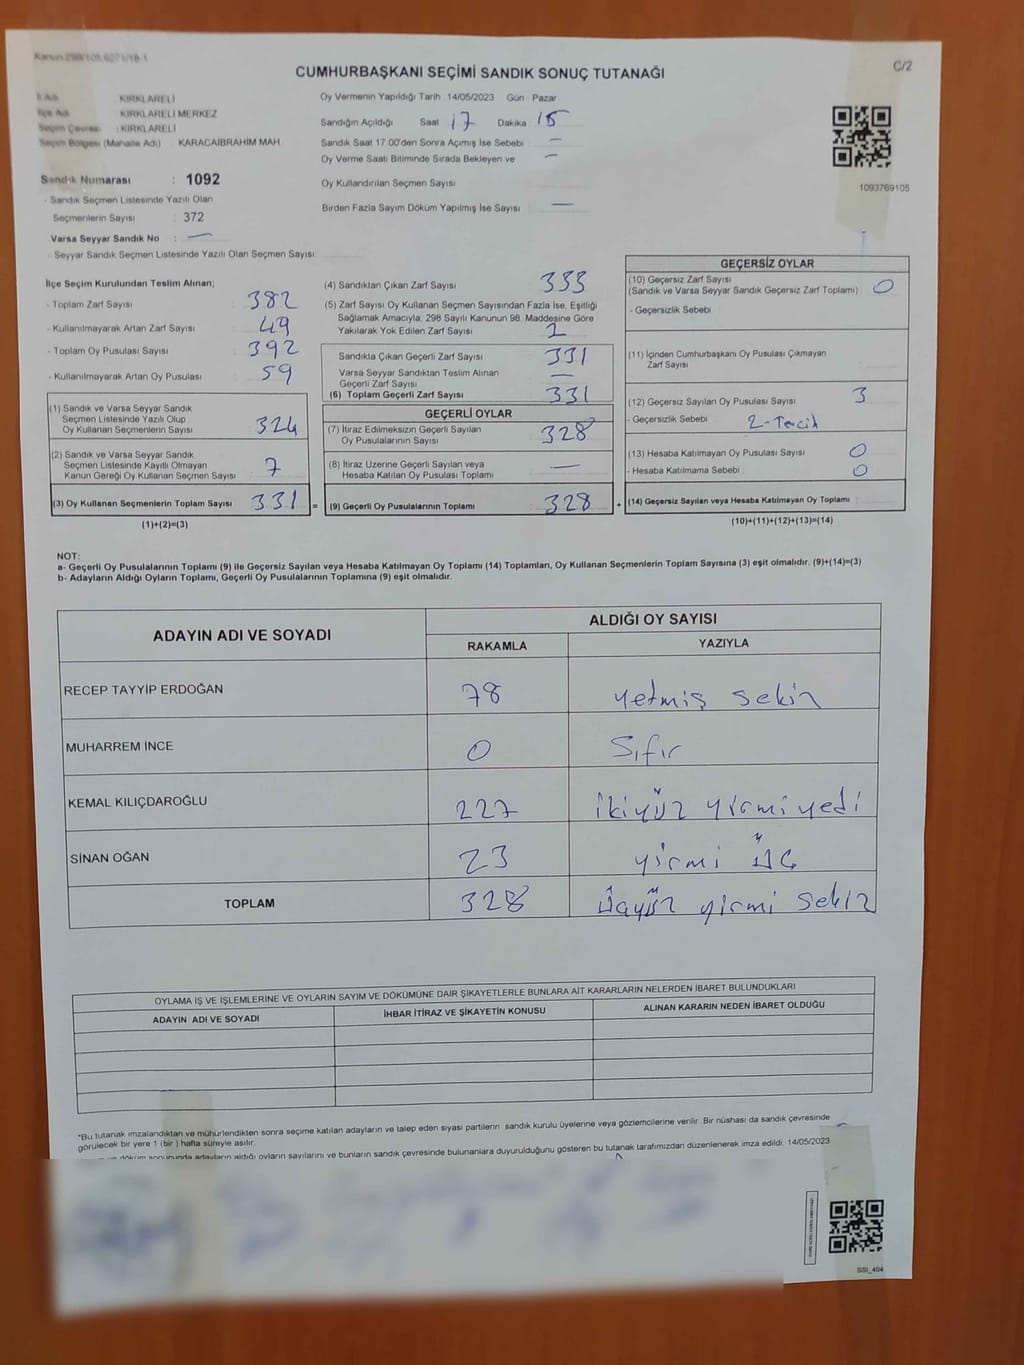 CUMHURBAŞKANI SEÇİMİ SANDIK SONUÇ TUTANAĞI
C/2
İl Adı KIRKLARELİ
İlçe Adı KIRKLARELİ MERKEZ
Seçim Çevresi : KIRKLARELİ
Seçim Bölgesi (Mahalle Adı) KARACAIBRAHİM MAH
Sandık Numarası : 1092
- Sandık Seçmen Listesinde Yazılı Olan
Seçmenlerin Sayısı : 372
Varsa Seyyar Sandık No : —
- Seyyar Sandık Seçmen Listesinde Yazılı Olan Seçmen Sayısı:
Oy Vermenin Yapıldığı Tarih : 14/05/2023 Gün : Pazar
Sandığın Açıldığı Saat 17 Dakika 15
Sandık Saat 17:00'den Sonra Açımış İse Sebebi —
Oy Verme Saati Bitiminde Sırada Bekleyen ve —
Oy Kullandırılan Seçmen Sayısı
Birden Fazla Sayım Döküm Yapılmış İse Sayısı —
1093769105
İlçe Seçim Kurulundan Teslim Alınan;
- Toplam Zarf Sayısı : 382
- Kullanılmayarak Artan Zarf Sayısı : 49
- Toplam Oy Pusulası Sayısı : 392
- Kullanılmayarak Artan Oy Pusulası : 59
(1) Sandık ve Varsa Seyyar Sandık
Seçmen Listesinde Yazılı Olup
Oy Kullanan Seçmenlerin Sayısı : 324
(2) Sandık ve Varsa Seyyar Sandık
Seçmen Listesinde Kayıtlı Olmayan
Kanun Gereği Oy Kullanan Seçmen Sayısı : 7
(3) Oy Kullanan Seçmenlerin Toplam Sayısı : 331 =
(1)+(2)=(3)
(4) Sandıktan Çıkan Zarf Sayısı : 333
(5) Zarf Sayısı Oy Kullanan Seçmen Sayısından Fazla İse, Eşitliği
Sağlamak Amacıyla, 298 Sayılı Kanunun 98. Maddesine Göre
Yakılarak Yok Edilen Zarf Sayısı : 2
Sandıkta Çıkan Geçerli Zarf Sayısı : 331
Varsa Seyyar Sandıktan Teslim Alınan
Geçerli Zarf Sayısı : —
(6) Toplam Geçerli Zarf Sayısı : 331
GEÇERLİ OYLAR
(7) İtiraz Edilmeksizin Geçerli Sayılan
Oy Pusulalarının Sayısı : 328
(8) İtiraz Üzerine Geçerli Sayılan veya
Hesaba Katılan Oy Pusulası Toplamı : —
(9) Geçerli Oy Pusulalarının Toplamı : 328 +
GEÇERSİZ OYLAR
(10) Geçersiz Zarf Sayısı
(Sandık ve Varsa Seyyar Sandık Geçersiz Zarf Toplamı) : 0
- Geçersizlik Sebebi
(11) İçinden Cumhurbaşkanı Oy Pusulası Çıkmayan
Zarf Sayısı
(12) Geçersiz Sayılan Oy Pusulası Sayısı : 3
- Geçersizlik Sebebi : 2-Tercih
(13) Hesaba Katılmayan Oy Pusulası Sayısı : 0
- Hesaba Katılmama Sebebi : 0
(14) Geçersiz Sayılan veya Hesaba Katılmayan Oy Toplamı :
(10)+(11)+(12)+(13)=(14)
NOT:
a- Geçerli Oy Pusulalarının Toplamı (9) ile Geçersiz Sayılan veya Hesaba Katılmayan Oy Toplamı (14) Toplamları, Oy Kullanan Seçmenlerin Toplam Sayısına (3) eşit olmalıdır. (9)+(14)=(3)
b- Adayların Aldığı Oyların Toplamı, Geçerli Oy Pusulalarının Toplamına (9) eşit olmalıdır.
ADAYIN ADI VE SOYADI
ALDIĞI OY SAYISI
RAKAMLA YAZIYLA
RECEP TAYYİP ERDOĞAN 78 yetmiş sekiz
MUHARREM İNCE 0 Sıfır
KEMAL KILIÇDAROĞLU 227 ikiyüz yirmi yedi
SİNAN OĞAN 23 yirmi üç
TOPLAM 328 üçyüz yirmi sekiz
OYLAMA İŞ VE İŞLEMLERİNE VE OYLARIN SAYIM VE DÖKÜMÜNE DAİR ŞİKAYETLERLE BUNLARA AİT KARARLARIN NELERDEN İBARET BULUNDUKLARI
ADAYIN ADI VE SOYADI İHBAR İTİRAZ VE ŞİKAYETİN KONUSU ALINAN KARARIN NEDEN İBARET OLDUĞU
*Bu tutanak imzalandıktan ve mühürlendikten sonra seçime katılan adayların ve talep eden siyasi partilerin sandık kurulu üyelerine veya gözlemcilerine verilir. Bir nüshası da sandık çevresinde
görülecek bir yere 1 (bir ) hafta süreyle asılır.
ve döküm sonucunda adayların aldığı oyların sayılarını ve bunların sandık çevresinde bulunanlara duyurulduğunu gösteren bu tutanak tarafımızdan düzenlenerek imza edildi. 14/05/2023
SSI_404